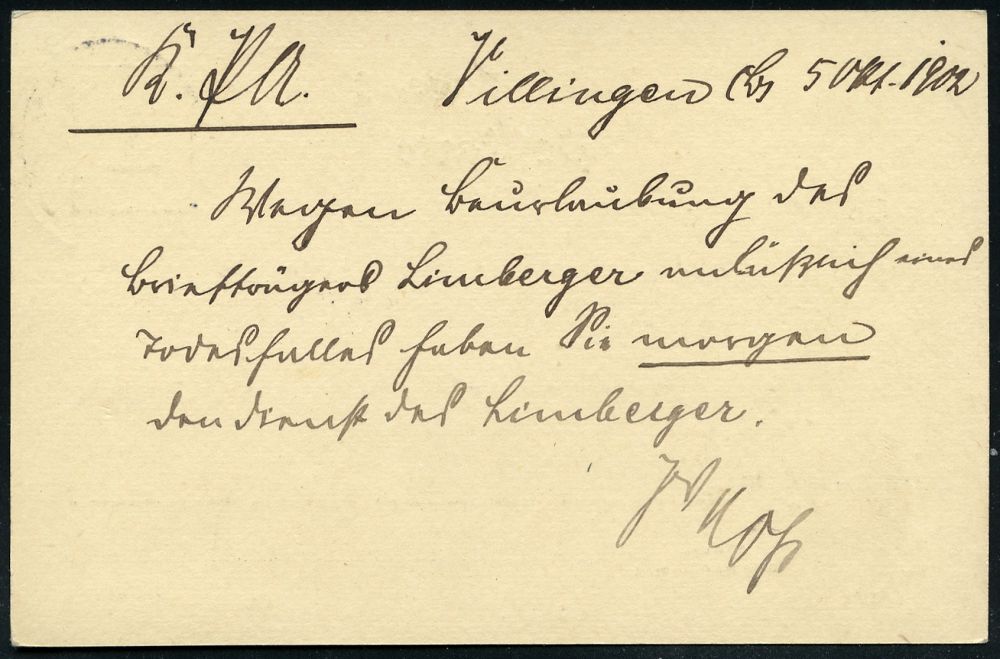 K. PA. Villingen 5 Okt. 1902
Wegen Beurlaubung des
Briefträgers Limberger anläßlich eines
Todesfalles haben Sie morgen
den Dienst des Limberger.